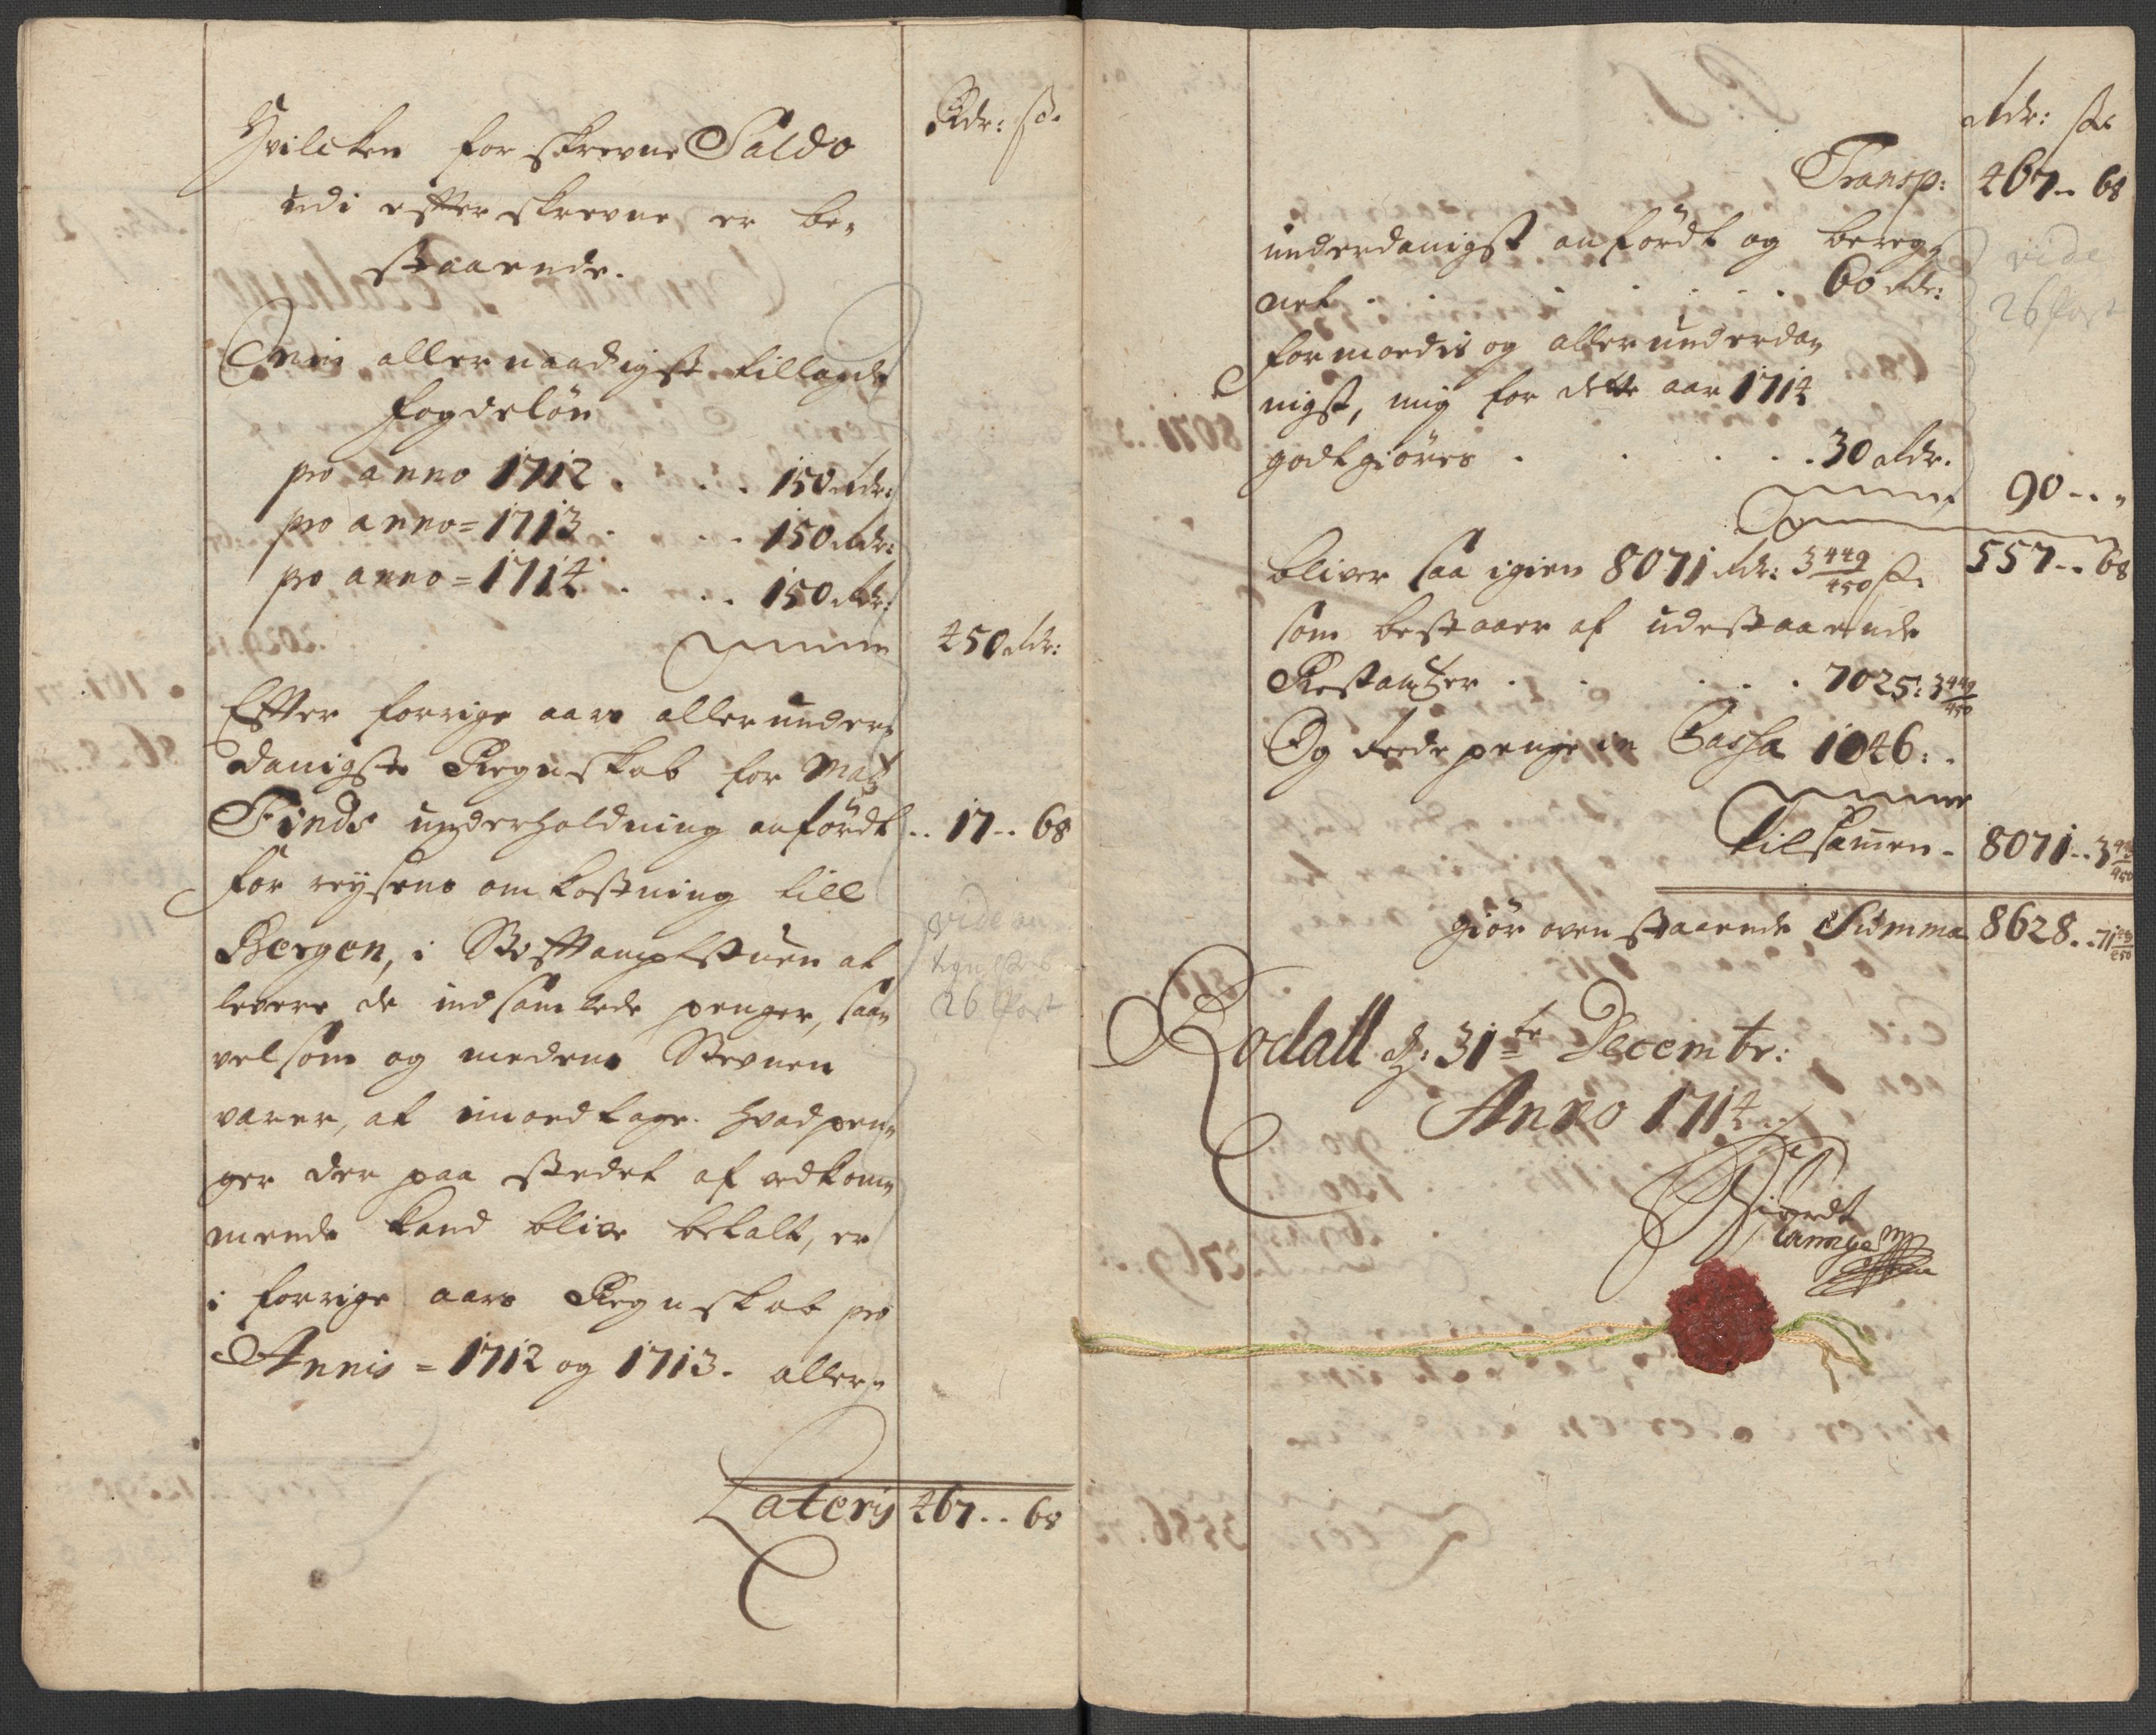 Rdr: ß.
Hvilcken forskrevne Saldo
udi efterskrevne er be„
staaende.
Min allernaadigst tillagde
fogdelön
pro anno 1712 . . . 150 rdr:
pro anno = 1713 . . . 150 rdr:
pro anno = 1714 . . . 150 rdr:
450 rdr:
Efter forrige aars allerunder„
danigste Regnskab for Matz
Finds underholdning anfördt .. 17 .. 68
for reysens omkostning till
Bergen, i Stiftamptstuen at
levere de indsamlede penger, saa„
velsom og medens Stevnen
varer, at imodtage. hvad pen„
ger der paa stedet af vedkom„
mende kand blive betalt, er
i forrige aars Regnskab pro
Annis = 1712 og 1713. aller„
vide
26 Post
Lateris 467 .. 68
rdr: ß.
Transp: 467 .. 68
underdanigst anfördt og bereg„
net . . . . . . 60 rdr:
vide
26 Post
formodis og allerunderda„
nigst, mig for dette aar 1714
godtgiöres . . . . 30 rdr.
90 .. „
bliver saa igien 8071 rdr: 3 449/450 ß. 557 .. 68
som bestaaer af udestaaende
Restantzer . . . . . 7025: 3 449/450
Og Rede penge in Cassa 1046: .
tilsam̄en - 8071 .. 3 449/450
giör ovenstaaende Summa 8628 .. 71 449/450
Rodall d: 31te Decembr:
Anno 1714
Siverdt
Lange